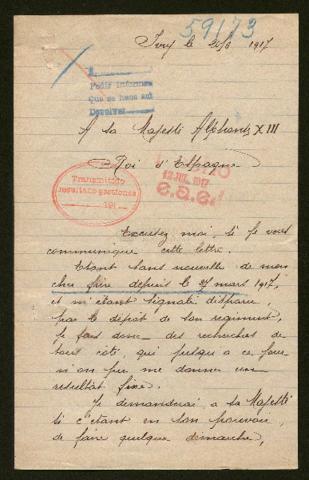 59173
Ivry le 21/6 1917
Pedir informes
Que se haga así
Devolver
A sa Majesté Alphonse XIII
Roi d'Espagne
Transmitido
resultado gestiones
191
12 JUL. 1917
Excusez moi si je vous
communique cette lettre.
Etant sans nouvelle de mon
cher frère depuis le 27 mars 1917,
et m'étant signalé disparu
par le dépôt de son régiment,
je fais donc des recherches de
tous côté, qui jusqu'à ce jour
m'on pu me donner un
resultat fixe.
Je demanderai a sa Majesté
si c'étant en son pouvoir,
de faire quelque démarche,